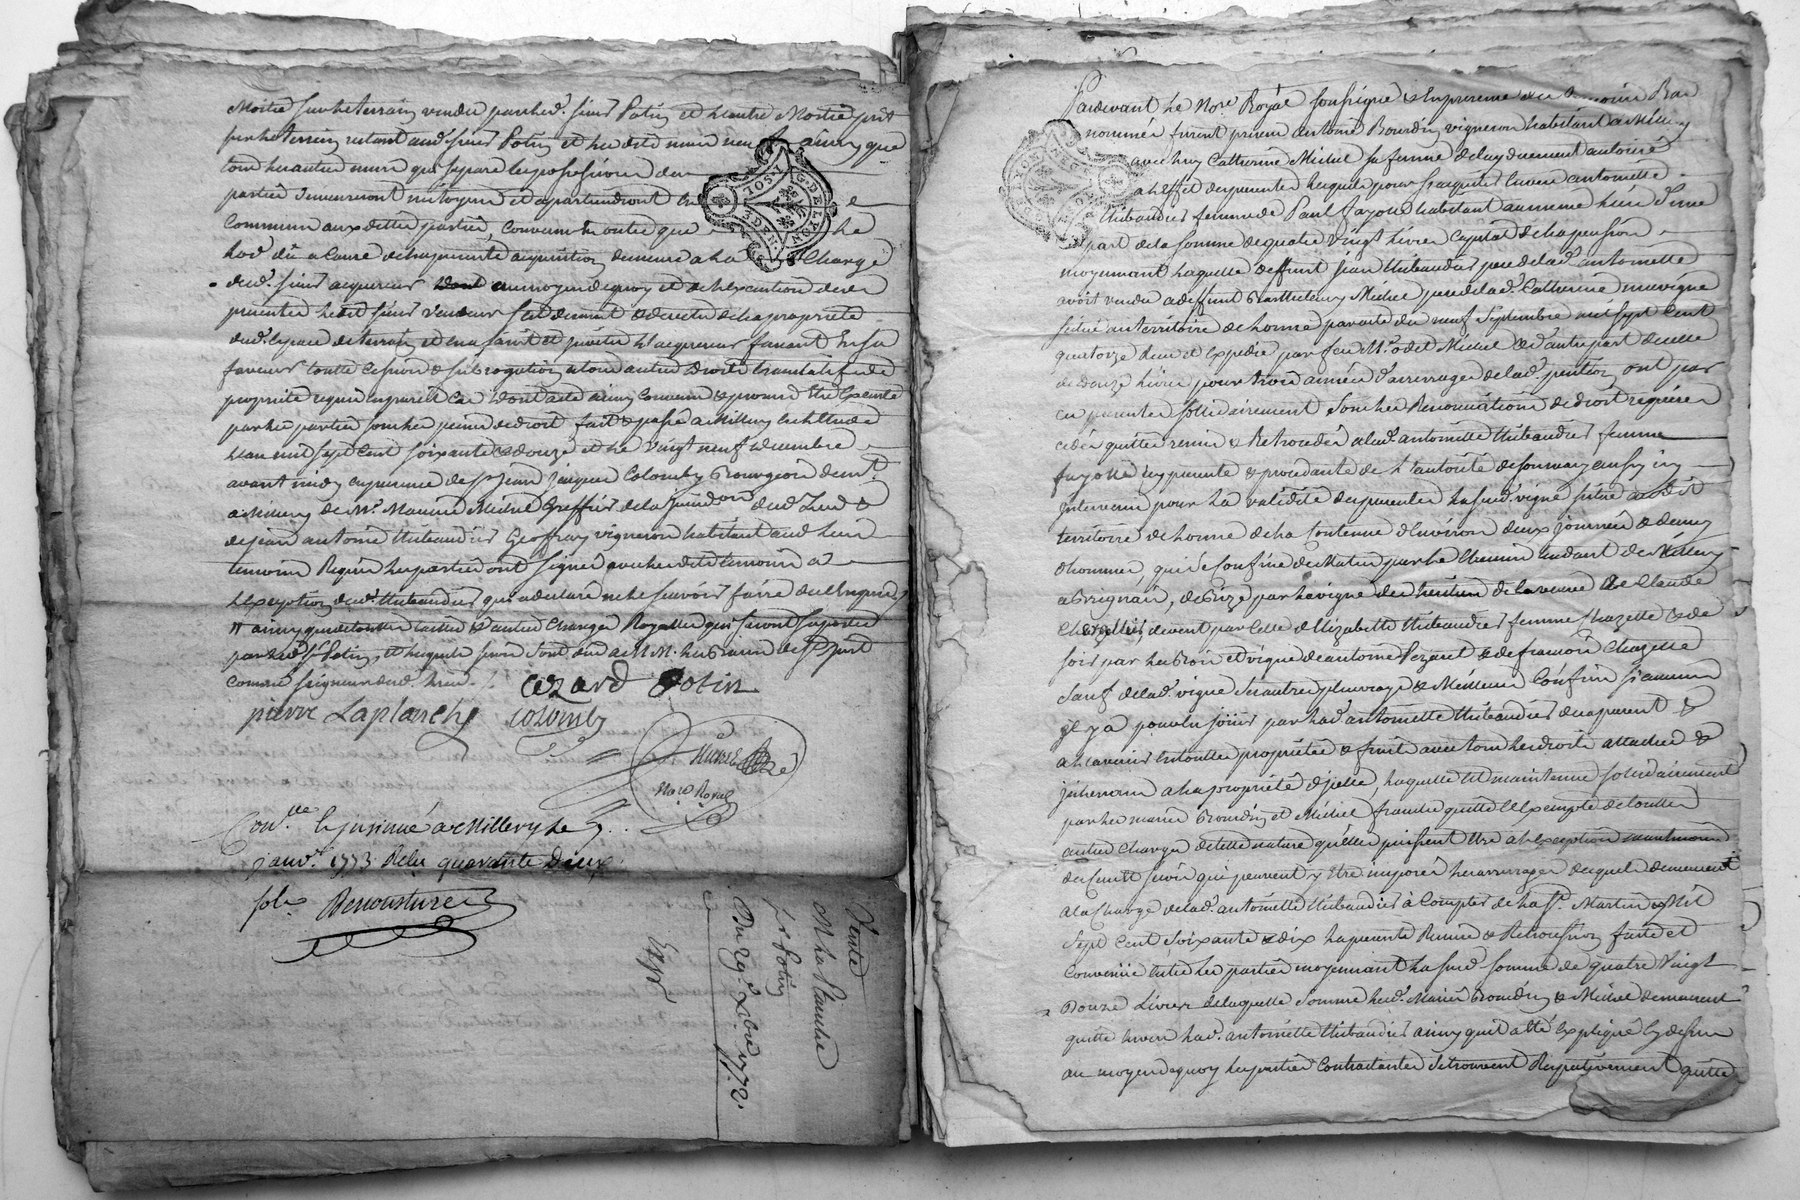 Moitié sur le terrain vendu par led. sieur Potin et l'autre Moitié soit
sur le terrein restant aud. sieur Potin et le dit mur neuf ainsy que
tous les autres murs qui separe les possessions des
parties demeureront mitoyens et apartiendront en
Commun aux dittes parties, Convenu en outre que le
lod. dû a Cause de la presente acquisition demeure a la Charge
dud. sieur acquereur au moyen de quoy et de l'execution des
presentes led. sieur Vendeur s'est demit & devetu de la proprieté
dud. espace de terrain et en a saisit et investit l'acquereur faisant en sa
faveur toutte Cession & subrogation a tous autres droits translatifs de
proprieté requis en pareil Cas Dont acte ainsy Convenu & promis Etre Executé
par les parties sous les peines de droit fait & passé a Millery en l'Etude
L'an mil sept Cent soixante & douze et le Vingt neuf decembre
avant midy en presence de sr. Jean Jacques Colomby Bourgeois demt.
a Millery de Mr. Maurice Michel Greffier de la Juridon. dud. Lieu &
de jean antoine thibaudier Geoffray vigneron habitant aud. lieu
temoins Requis les parties ont signé avec les dits temoins a
l'Exception dud. thibaudier qui a declaré ne le savoir faire de ce Enquis
Comtes seigneurs dud. lieu
Cezard Potin
pierre Laplanche Colomby
Michel
Nore Royal
Con.lle & insinué à Millery le 9
janvr. 1773 Reçu quarante Deux
sols Benousture
Vente
A La planche
pr Potin
Du 29e. Xbre 1772.
Expé
G. DE LYON
NEGE
Pardevant Le Nore. Royal soussigné & En presence des temoins Bas
nommés furent presens antoine Bourdin vigneron habitant a Millery
avec luy Catherine Michel sa femme de luy duement autorisé
a l'effet des presentes lesquels pour s'acquitter Envers antoinette
thibaudier femme de Paul fayolle habitant au meme lieu d'une
part de la somme de quatre vingt livres Capital de la pension
moyennant laquelle deffunt jean thibaudier pere de lad. antoinette
avoit vendu a deffunt Barthelemy Michel pere de lad. Catherine une vigne
situé au territoire de honne par acte du neuf Septembre mil sept Cent
quatorze reçu et Expedié par feu Me. odet Michel & d'autre part de celle
de douze livres pour trois années d'arrerages de lad. pention, ont par
ces presentes sollidairement sous les Renonciations de droit requises
cedé quitté remis & Retrocedés a lad. antoinette thibaudier femme
fayolle icy presente & procedante de L'autorité de son mary aussy icy
intervenu pour la validité des presentes la susd. vigne située audit
territoire de honne de la Contenue d'environ deux journées & demy
d'hommes, qui se Confine de Matin par le Chemin tendant de Millery
a Brignais, de Bize par la vigne des heritiers de la veuve de Claude
soir par les Bois et vigne de antoine Pezaret & de francois Chazelle
Sauf de lad. vigne ses autres plus vrays & Meilleurs Confins si aucuns
il y a pour en jouir par lad. antoinette thibaudier des apresent &
a l'avenir en toutte proprieté & fruits avec tous les droits attachés &
inherans a la proprieté d'icelle, laquelle est maintenue solidairement
par les mariés Bourdin et Michel franche quitte & Exempte de touttes
autres Charges de telle nature qu'elles puissent Etre a l'exception neantmoins
des Cens et servis qui peuvent y Etre imposés les arrerages desquels demeurent
a la Charge de lad. antoinette thibaudier à Compter de la St. Martin Mil
Sept Cent Soixante & dix la presente Remise & Retrocession faite et
Convenue entre les parties moyennant la susd. somme de quatre Vingt
Douze Livres de laquelle somme lesd. Mariés Bourdin & Michel demeurent
quitte Envers lad. antoinette thibaudier ainsy qu'il a été Expliqué cy dessus
au moyen de quoy les parties Contractantes se trouvent Respectivement quitte